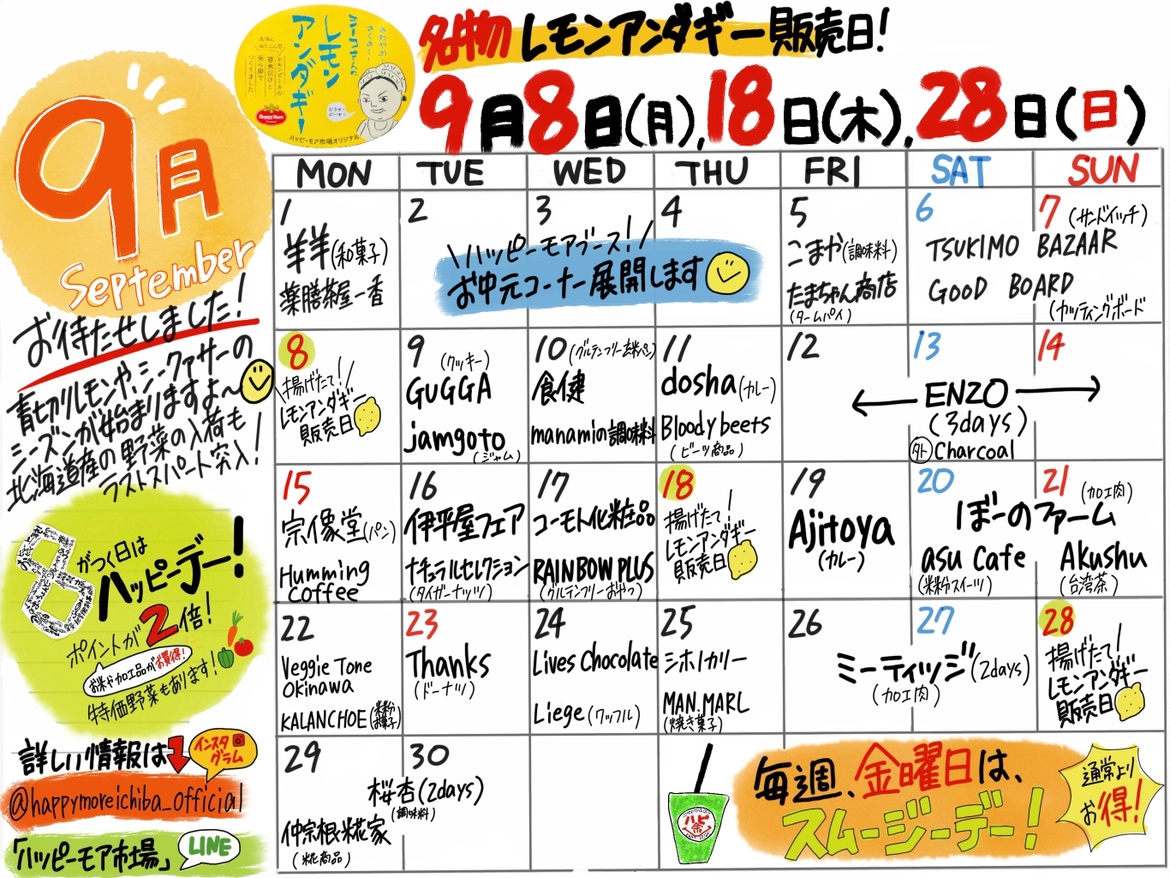 名物 レモンアンダギー販売日!
9月8日(月),18日(木),28日(日)
レモン
アンダギー
Happy More
ハッピーモア市場オリジナル
9月
September
お待たせしました!
青切りレモンや、シークァサーの
シーズンが始まりますよ〜
北海道産の野菜の入荷も
ラストスパート突入!
8がつく日は
ハッピーデー!
ポイントが2倍!
お米や加工品がお買得!
特価野菜もあります!
詳しい情報は
インスタ
グラム
@happymoreichiba_official
「ハッピーモア市場」
LINE
MON TUE WED THU FRI SAT SUN
1
羊羊(和菓子)
薬膳茶屋一香
2
3
4
\ハッピーモアブース!/
お中元コーナー展開します
5
こまや(調味料)
たまちゃん商店
(タームパイ)
6
7 (サンドイッチ)
TSUKIMO BAZAAR
GOOD BOARD
(カッティングボード
8
揚げたて!
レモンアンダギー
販売日
9 (クッキー)
GUGGA
jamgoto
(ジャム)
10 (グルテンフリー玄米パン)
食健
manamiの調味料
11
dosha(カレー)
Bloody beets
(ビーツ商品)
12
13
14
ENZO
(3days)
外 Charcoal
15
宗像堂(パン)
Humming
Coffee
16
伊平屋フェア
ナチュラルセレクション
(タイガーナッツ)
17
コーモト化粧品
RAINBOW PLUS
(グルテンフリーおやつ)
18
揚げたて!
レモンアンダギー
販売日
19
Ajitoya
(カレー)
20
21 (加工肉)
ぼーのファーム
asu Cafe
(米粉スイーツ)
Akushu
(台湾茶)
22
Veggie Tone
Okinawa
KALANCHOE(米粉お菓子)
23
Thanks
(ドーナツ)
24
Lives Chocolate
Liege(ワッフル)
25
シホノカリー
MAN.MARL
(焼き菓子)
26
27
ミーティッジ(2days)
(加工肉)
28
揚げたて!
レモンアンダギー
販売日
29
30
桜杏(2days)
(調味料)
仲宗根糀家
(糀商品)
毎週、金曜日は、
スムージーデー!
通常より
お得!